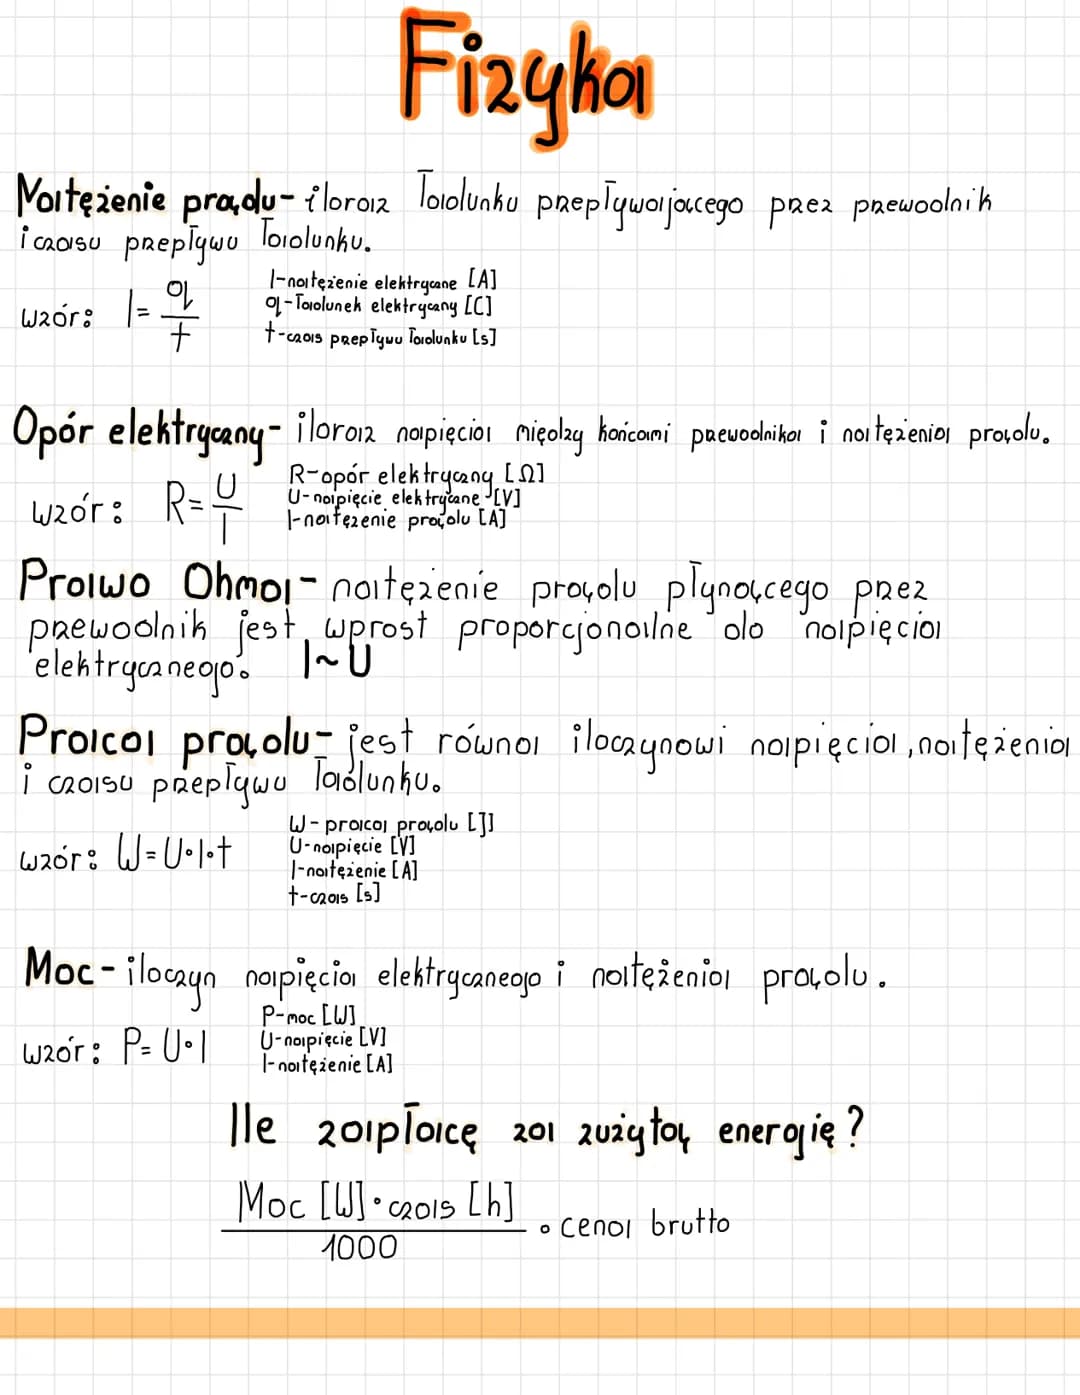 Fizyka
Natężenie prądu- iloraz ładunku przepływającego przez przewodnik
i czasu przepływu ładunku.
I-natężenie elektryczne [A]
wzór: I= q/t
q-ładunek elektryczny [C]
t-czas przepływu ładunku [s]
Opór elektryczny- iloraz napięcia między końcami przewodnika i natężenia prądu.
R-opór elektryczny [Ω]
wzór: R= U/I
U-napięcie elektryczne [V]
I-natężenie prądu [A]
Prawo Ohma- natężenie prądu płynącego przez
przewodnik jest wprost proporcjonalne do napięcia
elektrycznego. I~U
Praca prądu- jest równa iloczynowi napięcia, natężenia
i czasu przepływu ładunku.
W- praca prądu [J]
wzór: W=U·I·t
U-napięcie [V]
I-natężenie [A]
t-czas [s]
Moc- iloczyn napięcia elektrycznego i natężenia prądu.
P-moc [W]
wzór: P= U·I
U-napięcie [V]
I-natężenie [A]
Ile zapłacę za zużytą energię?
Moc [W]·czas [h]
1000
· cena brutto